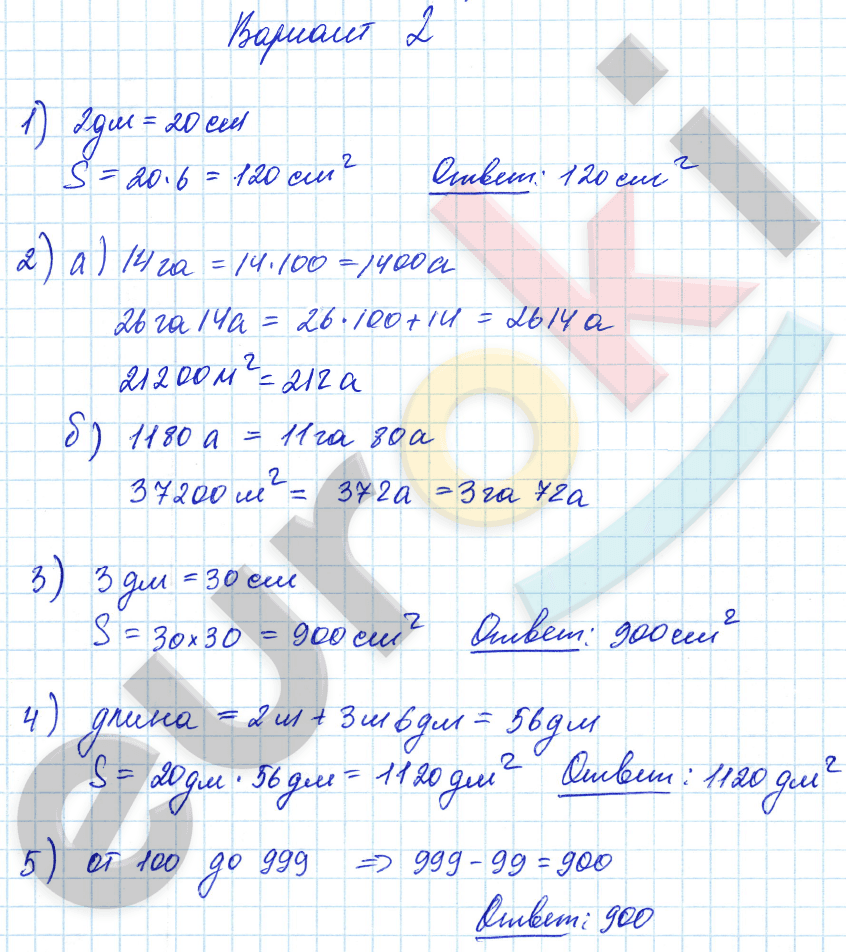 Вариант 2
1) 2дм = 20 см
S = 20·6 = 120 см² Ответ: 120 см²
2) а) 14 га = 14·100 = 1400 а
26 га 14 а = 26·100+14 = 2614 а
21200 м² = 212 а
б) 1180 а = 11 га 80 а
37200 м² = 372 а = 3 га 72 а
3) 3 дм = 30 см
S = 30×30 = 900 см² Ответ: 900 см²
4) длина = 2м + 3м 6дм = 56 дм
S = 20дм · 56дм = 1120 дм² Ответ: 1120 дм²
5) от 100 до 999 => 999 - 99 = 900
Ответ: 900
euroki